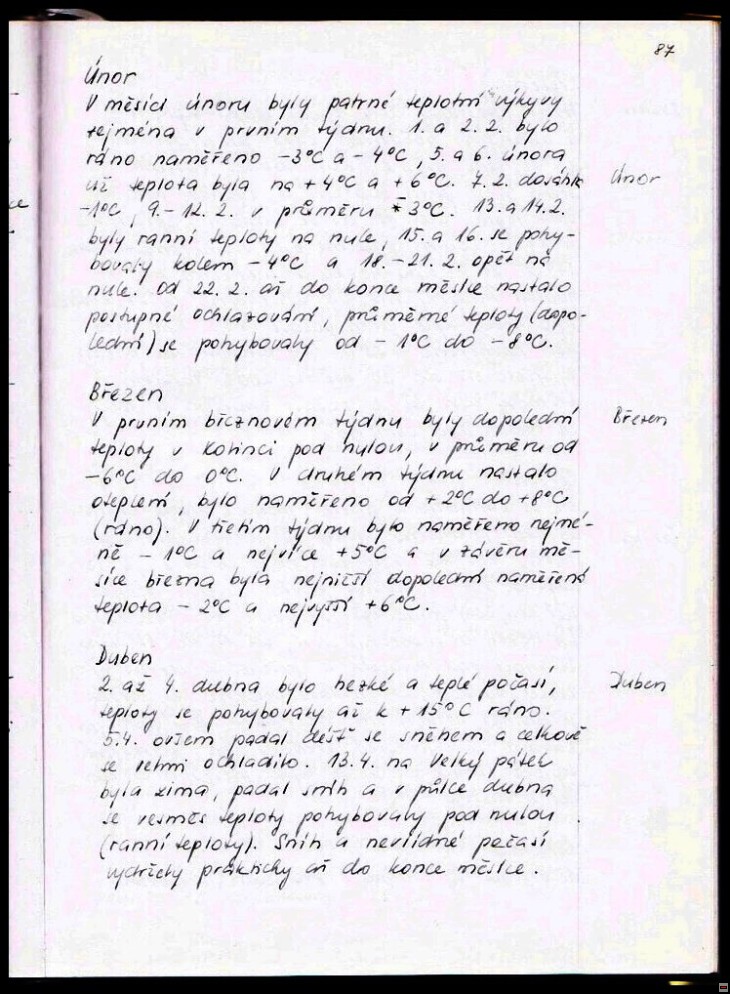 87
Únor
V měsíci únoru byly patrné teplotní výkyvy
zejména v prvním týdnu. 1. a 2. 2. bylo
ráno naměřeno -3°C a -4°C, 5. a 6. února
už teplota byla na +4°C a +6°C. 7. 2. dosáhla
Únor
-1°C, 9.-12. 2. v průměru 3°C. 13. a 14. 2.
byly ranní teploty na nule, 15. a 16. se pohy-
bovaly kolem -4°C a 18.-21. 2. opět na
nule. Od 22. 2. až do konce měsíce nastalo
postupné ochlazování, průměrné teploty (dopo-
lední) se pohybovaly od -1°C do -8°C.
Březen
V prvním březnovém týdnu byly dopolední
Březen
teploty v Kotinci pod nulou, v průměru od
-6°C do 0°C. V druhém týdnu nastalo
oteplení, bylo naměřeno od +2°C do +8°C
(ráno). V třetím týdnu bylo naměřeno nejmé-
ně -1°C a nejvíce +5°C a v závěru mě-
síce března byla nejnižší dopolední naměřená
teplota -2°C a nejvyšší +6°C.
Duben
2. až 4. dubna bylo hezké a teplé počasí,
Duben
teploty se pohybovaly až k +15°C ráno.
5.4. ovšem padal déšť se sněhem a celkově
se velmi ochladilo. 13.4. na Velký pátek
byla zima, padal sníh a v půlce dubna
se vesměs teploty pohybovaly pod nulou
(ranní teploty). Sníh a nevlídné počasí
vydržely prakticky až do konce měsíce.